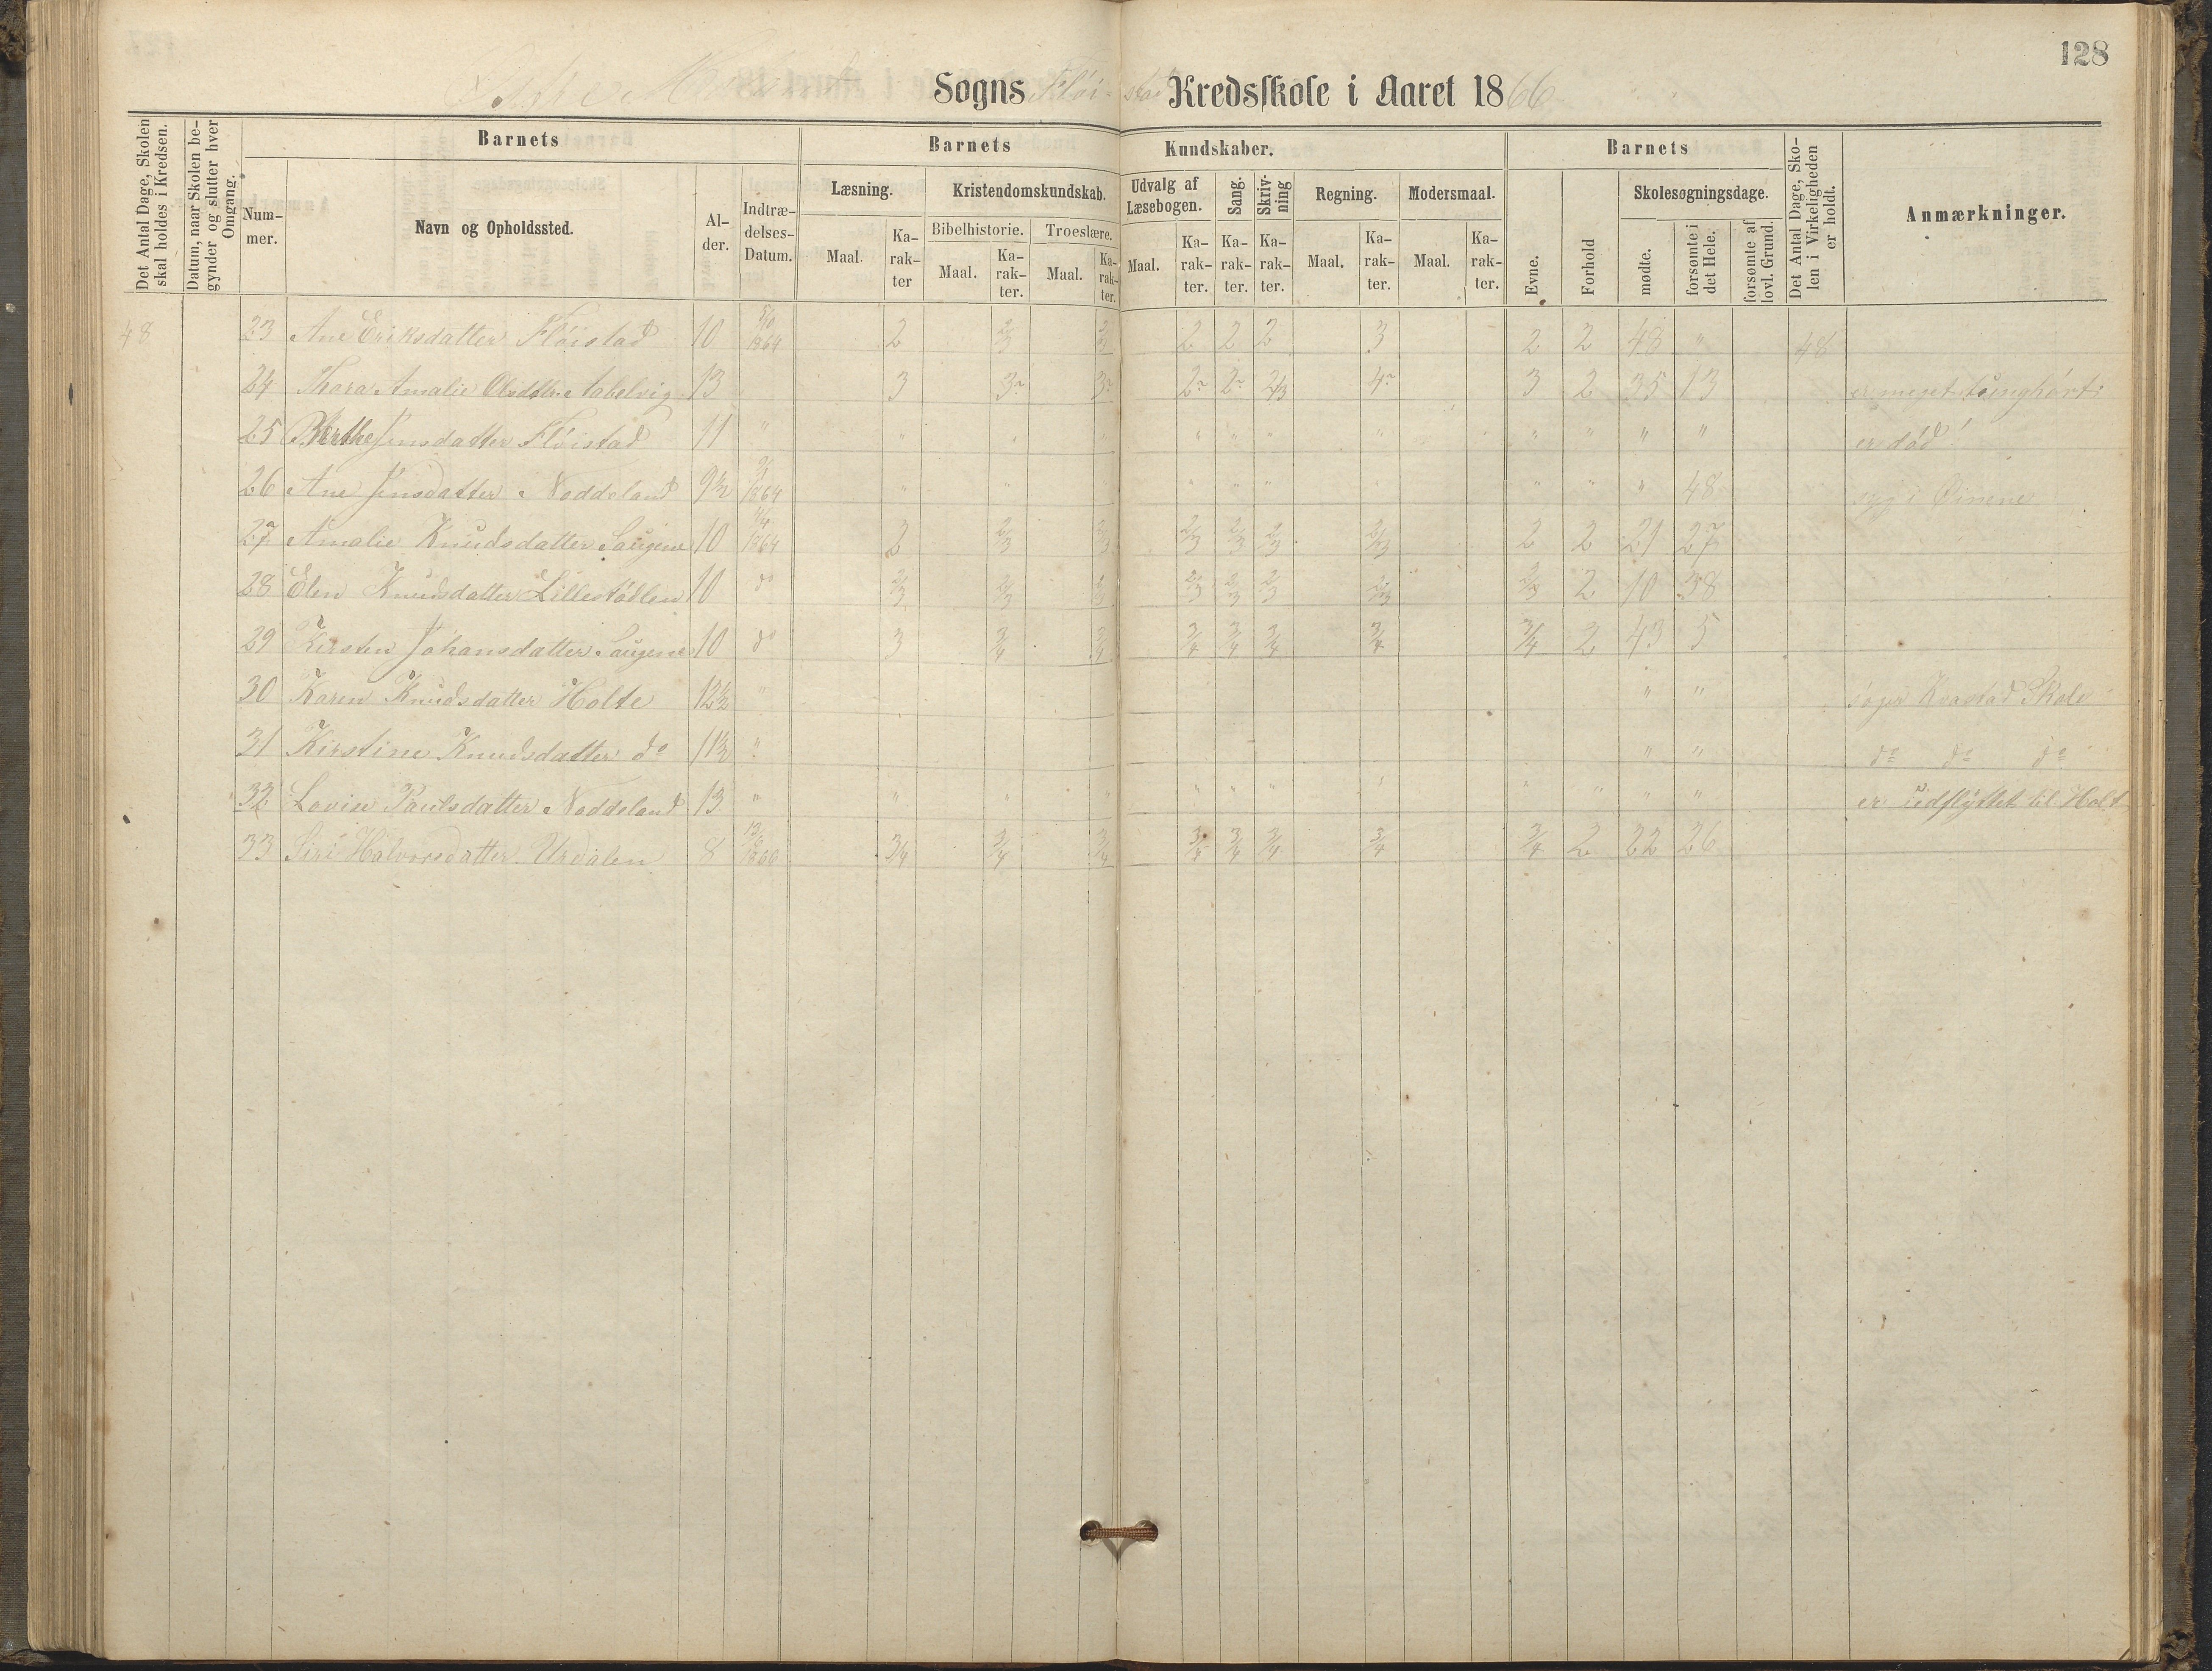 128
Sogns Flöistad Kredsskole i Aaret 1866
Det Antal Dage, Skolen skal holdes i Kredsen.
Datum, naar Skolen begynder og slutter hver Omgang.
Barnets
Barnets Kundskaber.
Barnets
Det Antal Dage, Skolen i Virkeligheden er holdt.
Anmærkninger.
Nummer.
Navn og Opholdssted.
Alder.
Indtrædelses-Datum.
Læsning.
Kristendomskundskab.
Udvalg af Læsebogen.
Sang.
Skrivning
Regning.
Modersmaal.
Evne.
Forhold
Skolesøgningsdage.
Bibelhistorie.
Troeslære.
Maal.
Karakter
Maal.
Karakter.
Maal.
Karakter.
Maal.
Karakter.
Karakter.
Karakter.
Maal.
Karakter.
Maal.
Karakter.
mødte.
forsømte i det Hele.
forsømte af lovl. Grund.
48 23 Ane Eriksdatter Flöistad 10 1864 2 2/3 2/3 2 2 2 3 2 2 48 " 48
24 Thora Amalie Olsdtr. Aabelvig 13 3 3 3 2 2 2/3 4 3 2 35 13 er meget tunghört
25 Berthe Jensdatter Flöistad 11 " " " " " " " " " " " " er död!
26 Ane Jensdatter Noddeland 9½ 1864 " " " " " " " " " 48 syg i Öinene
27 Amalie Knudsdatter Saugene 10 1864 2 2/3 2/3 2/3 2/3 2/3 2/3 2 2 21 27
28 Elen Knudsdatter Lillestödlen 10 do 2/3 2/3 2/3 2/3 2/3 2/3 2/3 2/3 2 10 38
29 Kirsten Johansdatter Saugene 10 do 3 3/4 3/4 3/4 3/4 3/4 3/4 3/4 2 43 5
30 Karen Knudsdatter Holte 12½ " " " söger Kvastad Skole
31 Kirstine Knudsdatter do 11½ " " " do do do
32 Lovise Paulsdatter Noddeland 13 " " " " " " " " " " " " er udflyttet til Holt
33 Siri Halvorsdatter Urdalen 8 3/4 3/4 3/4 3/4 3/4 3/4 3/4 3/4 2 22 26